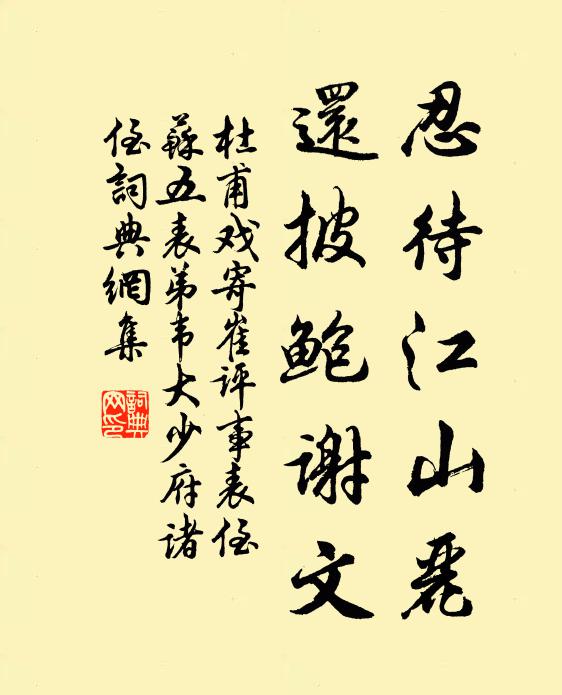 忍待江山麗
還披鲍谢文
杜甫戏寄崔评事表侄
蘇五表弟韦大少府诸
侄詞典網集
詞典网印